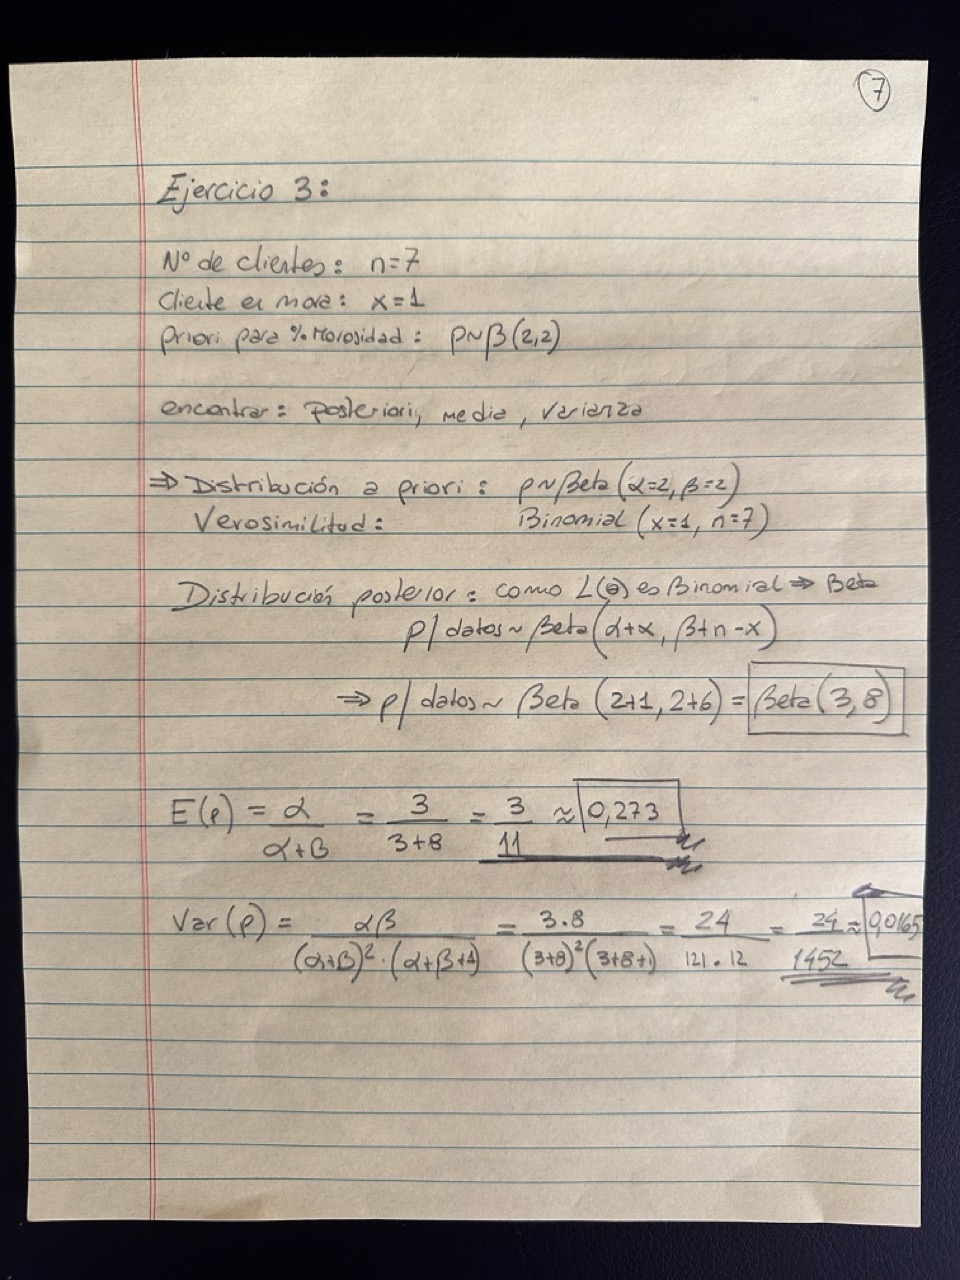 7
Ejercicio 3:
Nº de clientes: n=7
Cliente en mora: x=1
Priori para % Morosidad: p~β(2,2)
encontrar: Posteriori, media, varianza
⇒ Distribución a priori: p~Beta(α=2, β=2)
Verosimilitud: Binomial (x=1, n=7)
Distribución posterior: como L(θ) es Binomial ⇒ Beta
p/datos ~ Beta(α+x, β+n-x)
⇒ p/datos ~ Beta (2+1, 2+6) = Beta(3,8)
E(p) = α/(α+β) = 3/(3+8) = 3/11 ≈ 0,273
Var(p) = αβ/((α+β)²·(α+β+1)) = 3.8/((3+8)²(3+8+1)) = 24/(121.12) = 24/1452 ≈ 0,0165